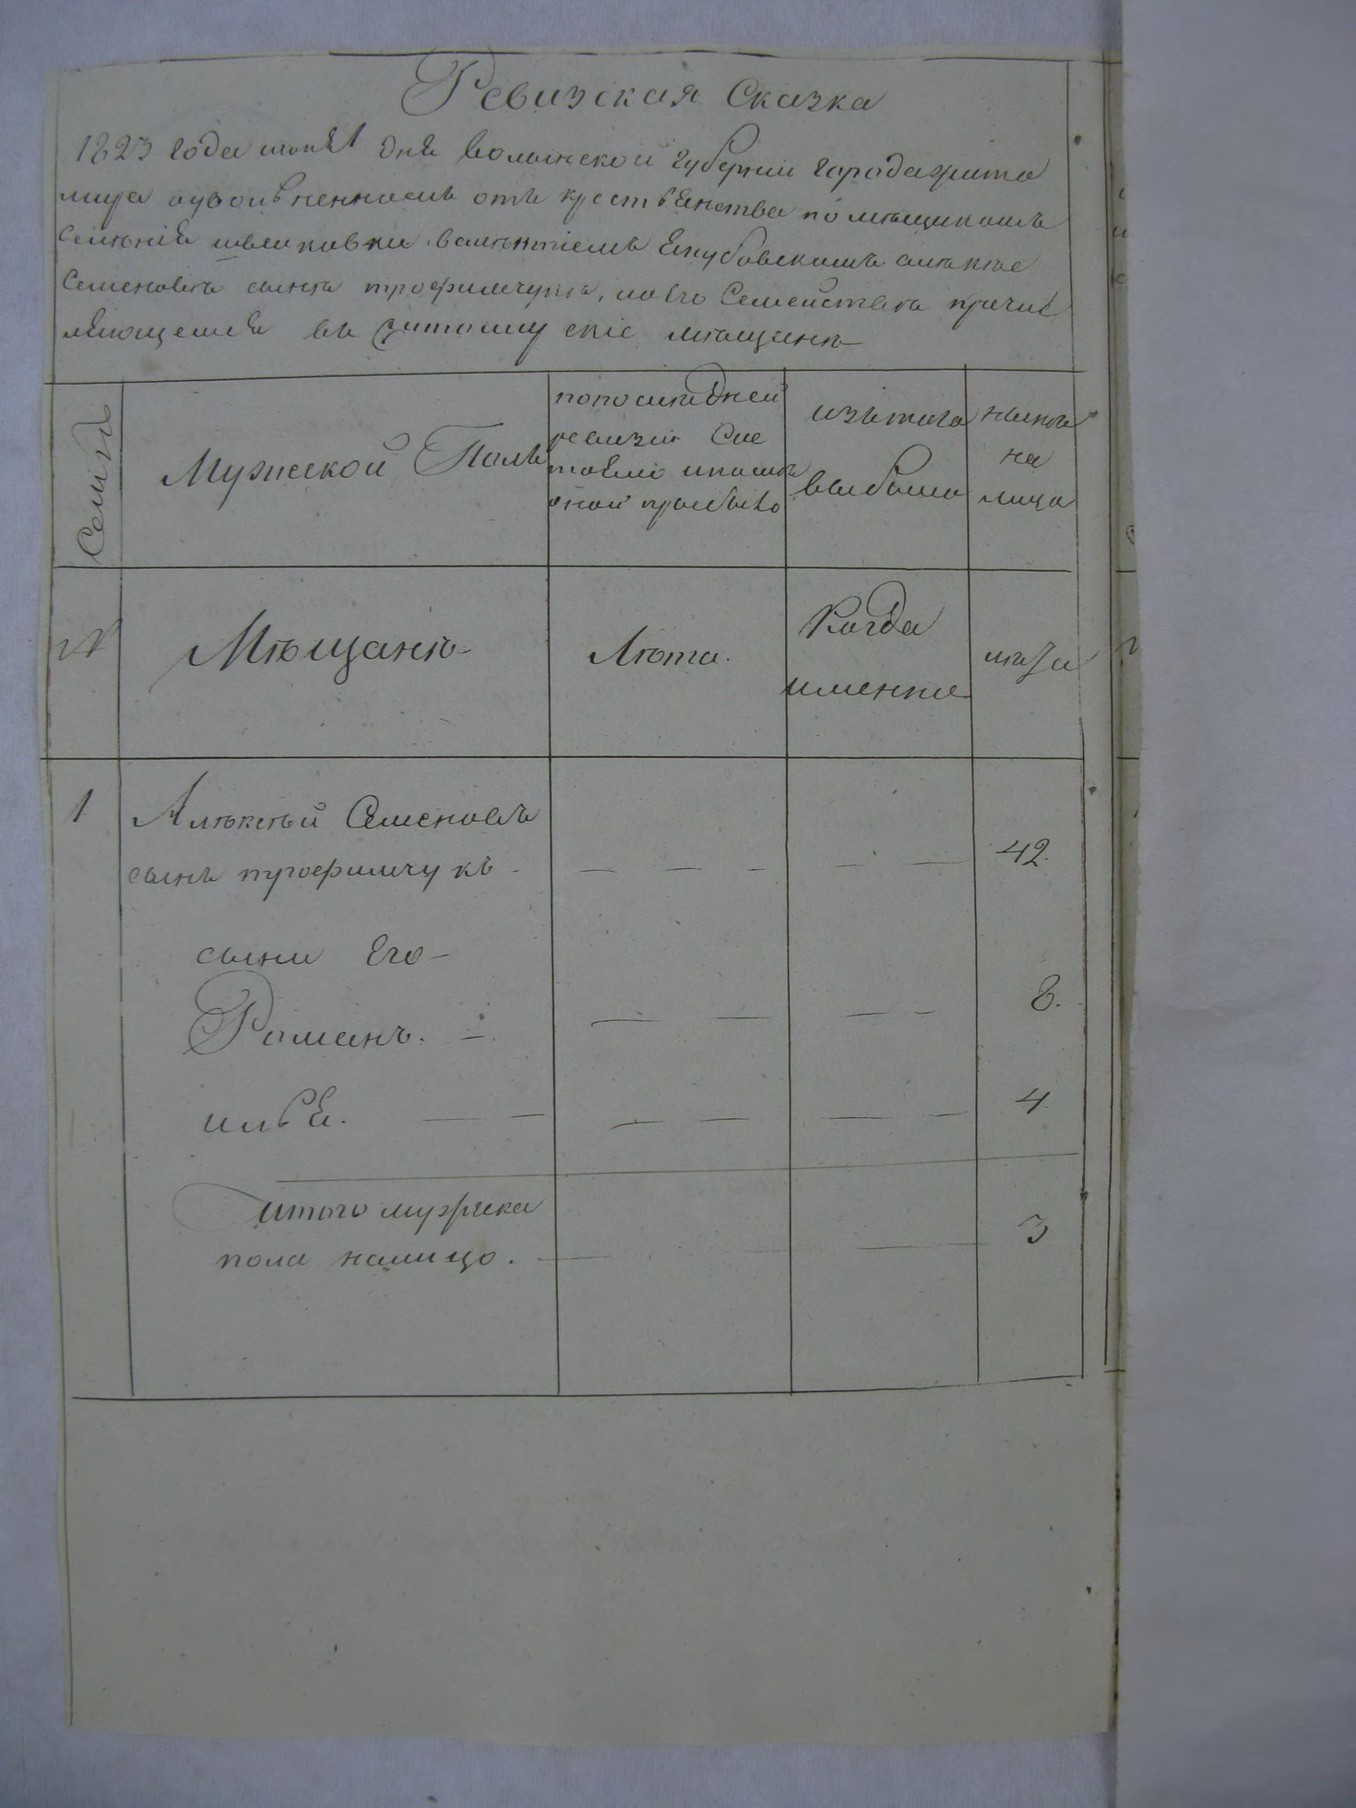 Ревизская Сказка
1823 года июня 1 дня Волынской губернии города жито
мира оувольненномъ отъ крестьянства помѣщикомъ
Селѣнія ивниковки валѣнтіемъ Якубовскимъ алѣксѣе
Семеновѣ сынѣ трофимчукѣ, и его Семействѣ причис
ляющемся въ житомирскіе мѣщанѣ
Семіи
Мужеской Полъ
по последней
ревизіи Сос
тояло и после
оной прибыло
изътого
выбыло
нынѣ
на
лицо
№
Мѣщанѣ
Лѣта.
Когда
именно
лѣта
1
Алѣксѣй Семеновъ
сынъ трофимчукъ
42.
сыни Его
Романъ.
8.
илья.
4
итого мужеска
пола налицо.
3